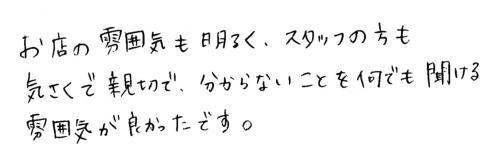 お店の雰囲気も明るく、スタッフの方も
気さくで親切で、分からないことを何でも聞ける
雰囲気が良かったです。